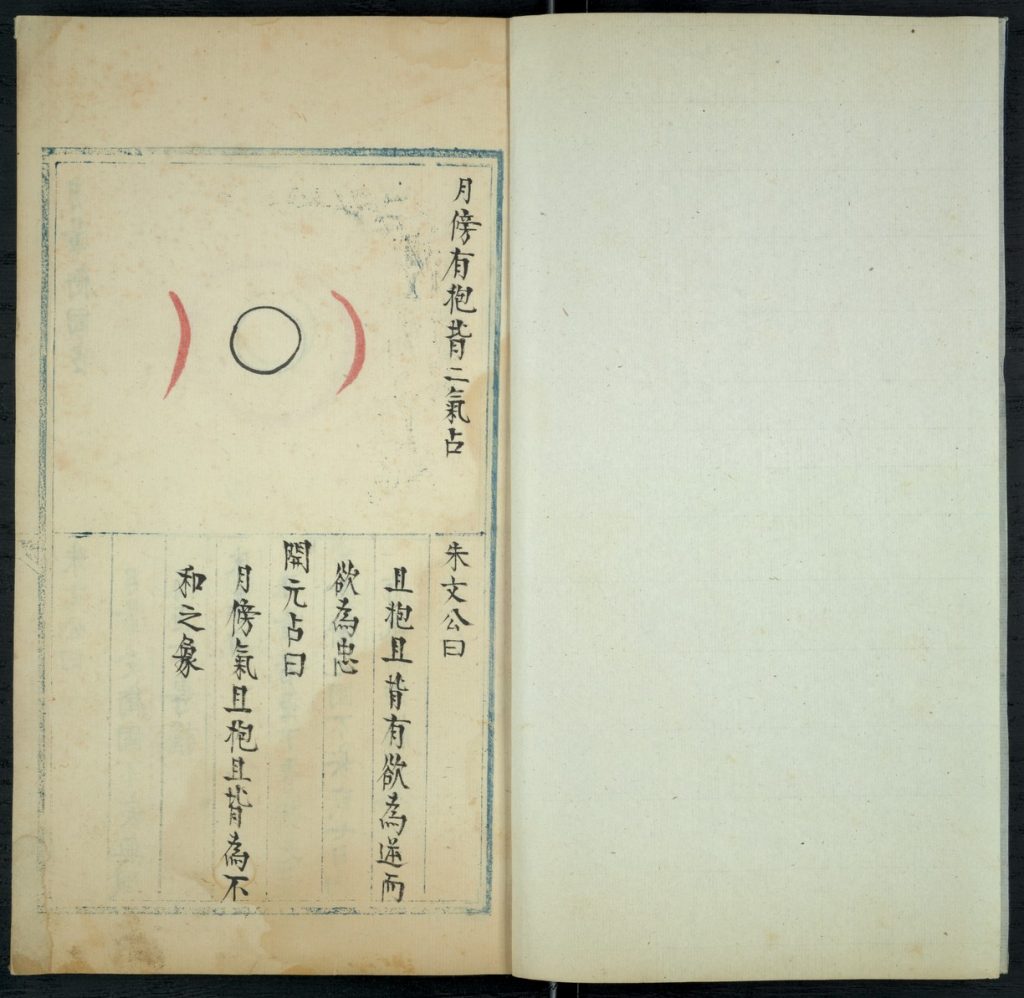 月傍有抱背二氣占
朱文公曰
且抱且背有欲為逆而
欲為忠
開元占曰
月傍氣且抱且背為不
和之象